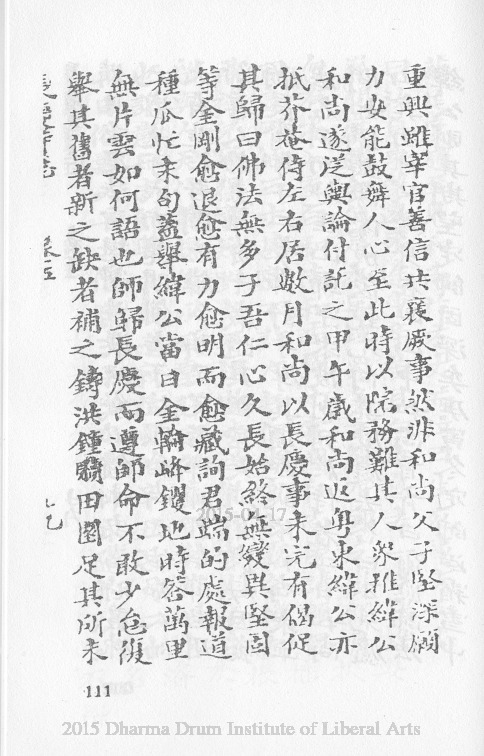 重興雖宰官善信共襄厥事然非和尚父子堅深願
力安能鼓舞人心至此時以院務難其人衆推緯公
和尚遂從輿論付託之甲午歲和尚返粤東緯公亦
抵芥菴侍左右居數月和尚以長慶事未完有偈促
其歸曰佛法無多子吾仁心久長始終無變異堅固
等金剛愈退愈有力愈明而愈藏詢君端的處報道
種瓜忙末句蓋舉緯公當日金輪峰钁地時答萬里
無片雲如何語也師歸長慶而遵師命不敢少怠復
舉其舊者新之缺者補之鑄洪鐘贖田園足其所未
長慶寺志 卷五
111
2015-01-17
2015 Dharma Drum Institute of Liberal Arts